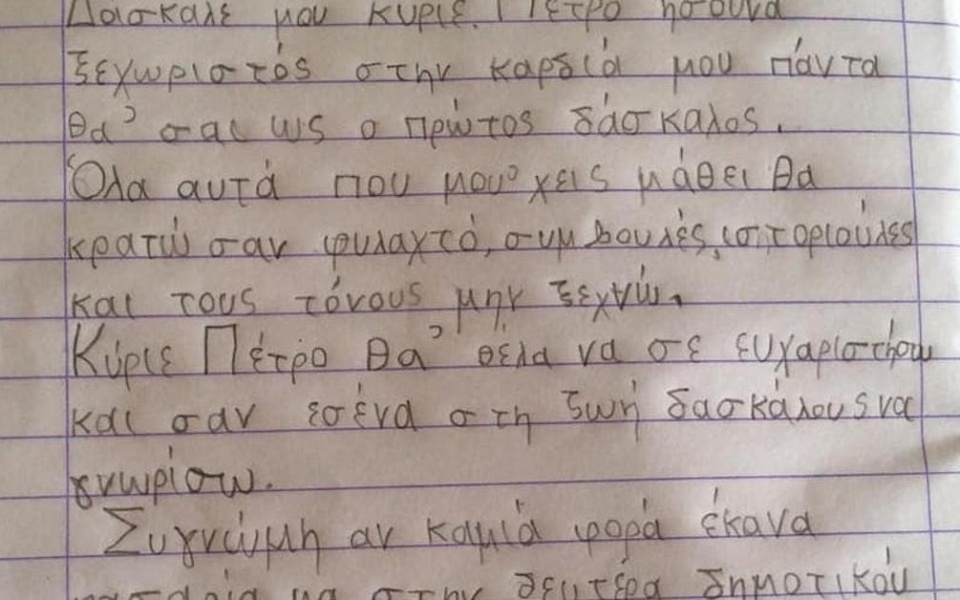 Δασκαλέ μου κύριε Πέτρο ήσουνα
ξεχωριστός στην καρδιά μου πάντα
θα' σαι ως ο πρώτος δάσκαλος.
Όλα αυτά που μου' χεις μάθει θα
κρατώ σαν φυλαχτό, συμβουλές, ιστοριούλες
και τους τόνους μην ξεχνώ.
Κύριε Πέτρο θα' θελα να σε ευχαριστήσω
και σαν εσένα στη ζωή δασκάλους να
γνωρίσω.
Συγνώμη αν καμιά φορά έκανα
στην δευτέρα δημοτικού